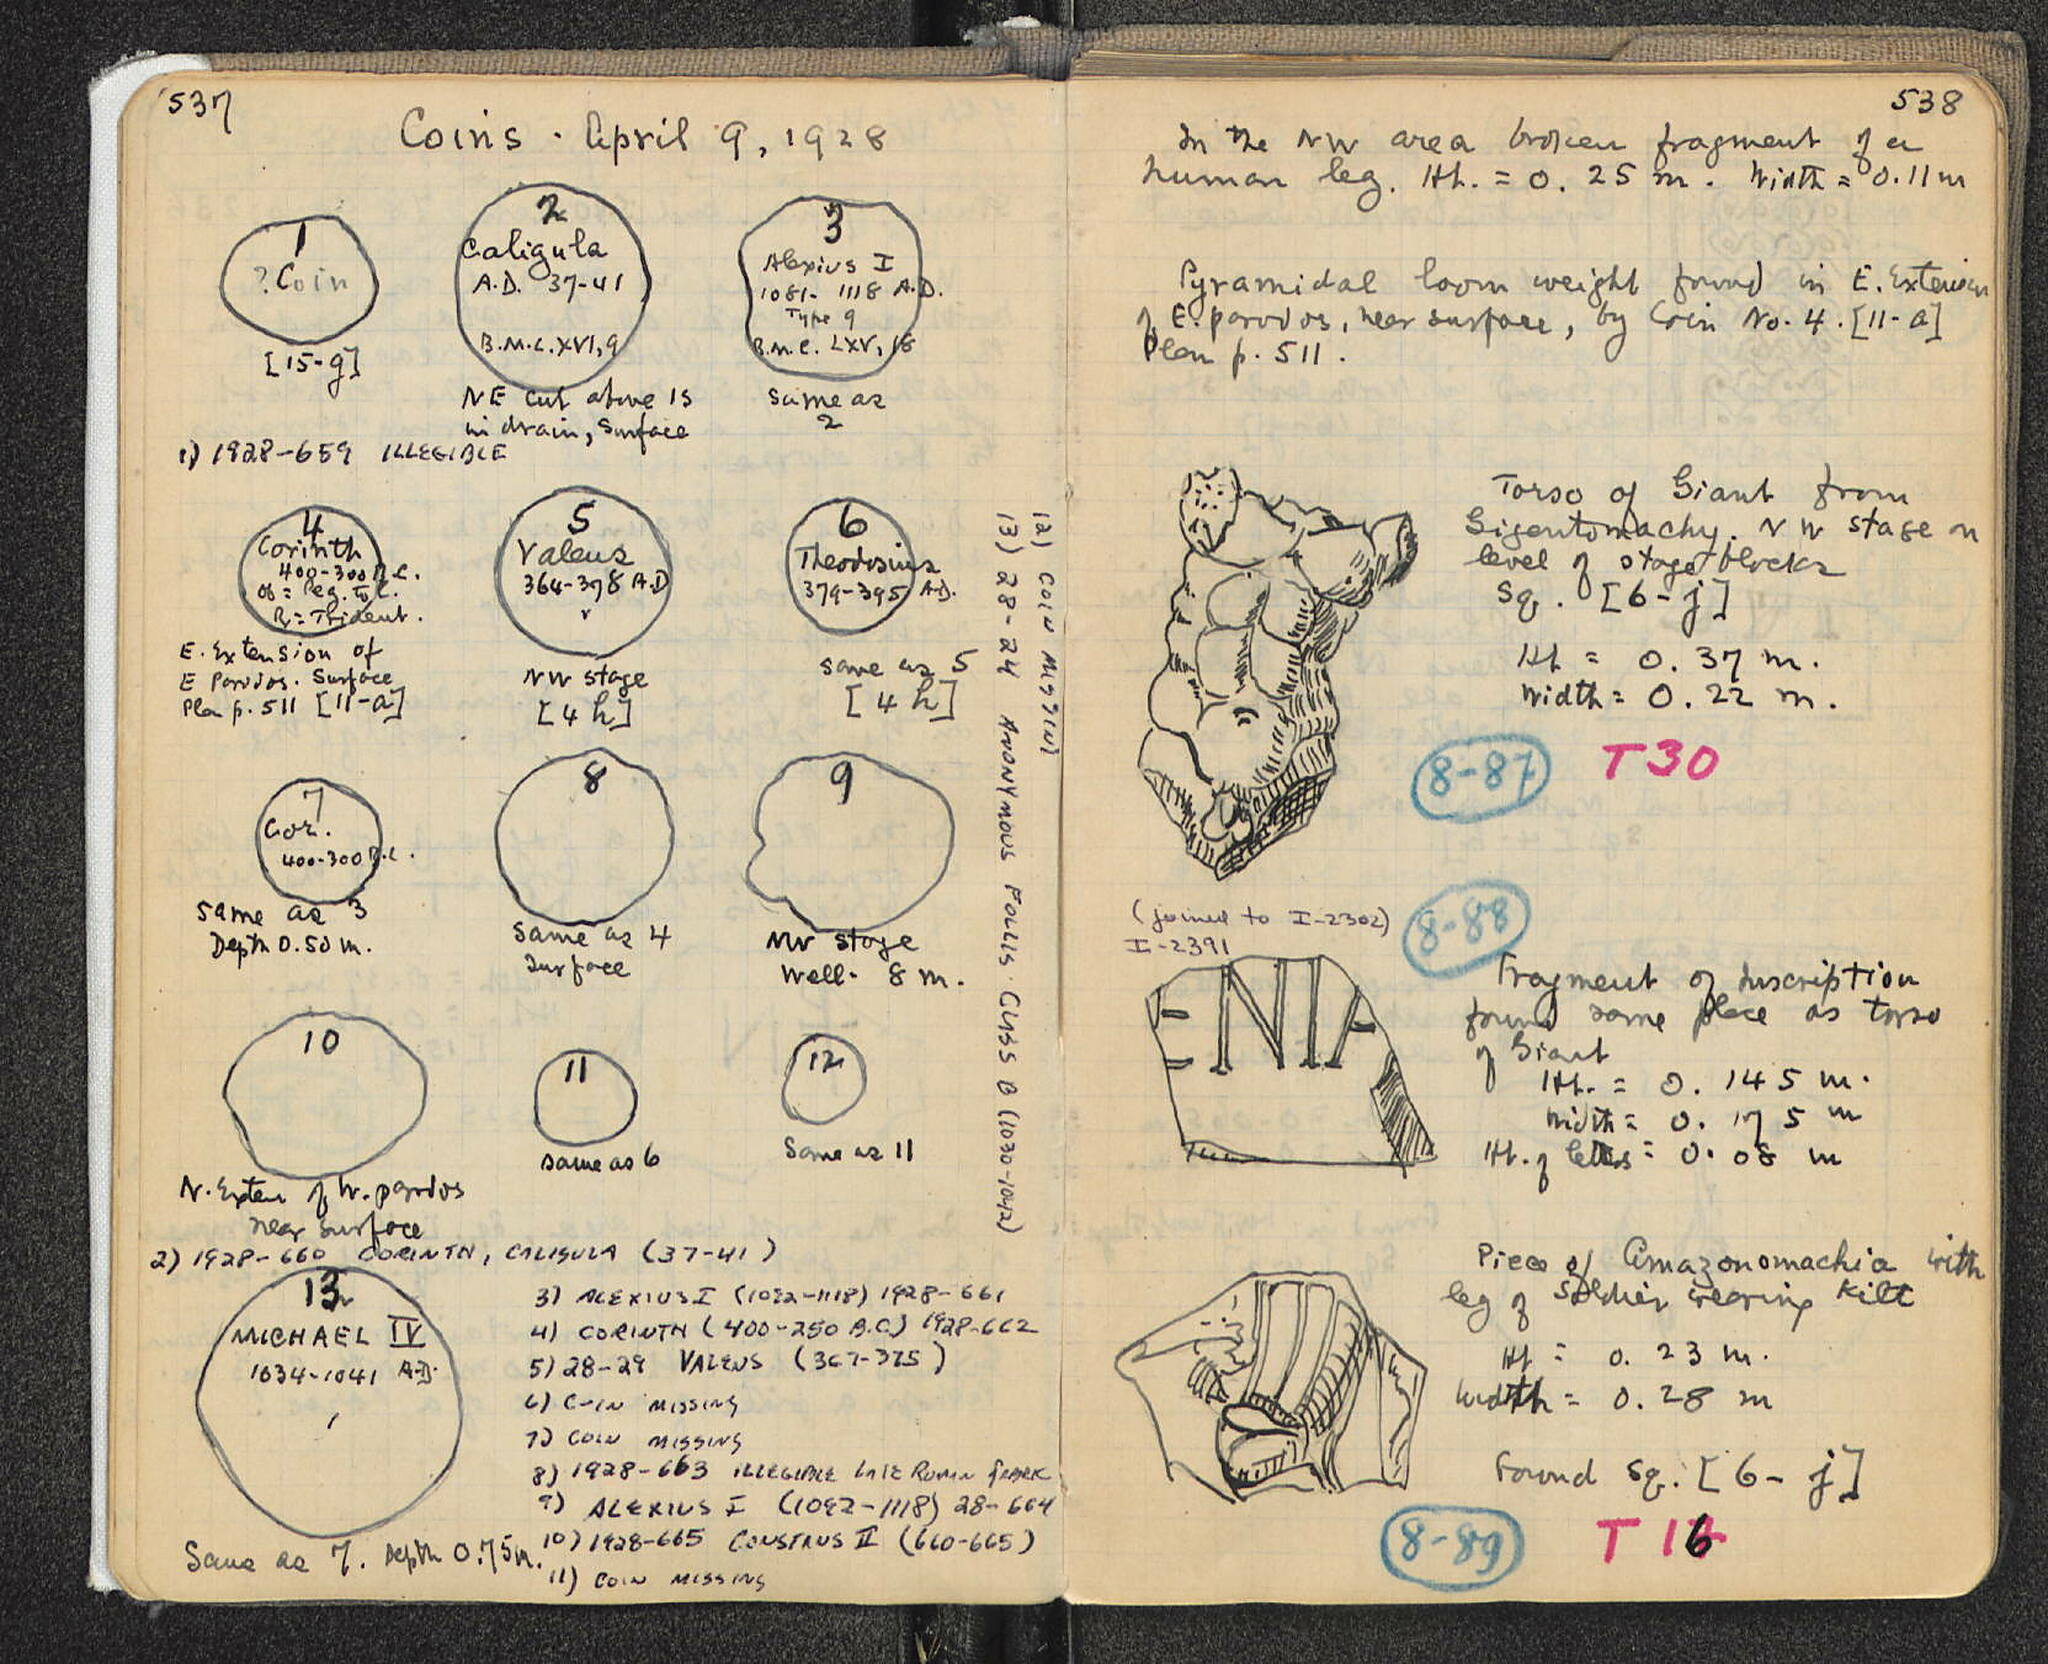 537
Coins · April 9, 1928
1
? Coin
[15-g]
2
Caligula
A.D. 37-41
B.M.C. XVI, 9
NE cut above 15
in drain, Surface
3
Alexius I
1081-1118 A.D.
Type 9
B.M.C. LXV, 18
Same as
2
1) 1928-659 ILLEGIBLE
4
Corinth
400-300 B.C.
ob = Peg. to l.
R = Trident.
E. Extension of
E Parodos. Surface
Plan p. 511 [11-a]
5
Valens
364-378 A.D
NW stage
[4 h]
6
Theodosius
379-395 A.D.
Same as 5
[4 h]
7
Cor.
400-300 B.C.
Same as 3
Depth 0.50 m.
8
Same as 4
Surface
9
NW stage
Well- 8 m.
10
N. Exten of W. parodos
near surface
11
Same as 6
12
Same as 11
12) COIN MISSING
13) 28-24 ANONYMOUS FOLLIS. CLASS B (1030-1042)
2) 1928-660 CORINTH, CALIGULA (37-41)
13
MICHAEL IV
1034-1041 A.D.
Same as 7. Depth 0.75 m.
3) ALEXIUS I (1092-1118) 1928-661
4) CORINTH (400-250 B.C.) 1928-662
5) 28-29 VALENS (367-375)
6) COIN MISSING
7) COIN MISSING
8) 1928-663 ILLEGIBLE LATE ROMAN
9) ALEXIUS I (1092-1118) 28-664
10) 1928-665 CONSTANS II (660-665)
11) COIN MISSING
538
In the NW area broken fragment of a
human leg. Ht. = 0.25 m. Width = 0.11 m
Pyramidal loom weight found in E. Extension
of E. parodos, near surface, by Coin No. 4. [11-a]
Plan p. 511.
Torso of Giant from
Gigantomachy. NW stage on
level of stage blocks
Sq. [6-j]
Ht = 0.37 m.
Width = 0.22 m.
8-87 T30
(joined to I-2302)
I-2391
8-88
ENIA
Fragment of Inscription
found same place as torso
of Giant
Ht. = 0.145 m.
Width = 0.175 m
Ht. of letters = 0.08 m
Piece of Amazonomachia with
leg of soldier wearing kilt
Ht = 0.23 m.
Width = 0.28 m
Found Sq. [6-j]
8-89 T 16